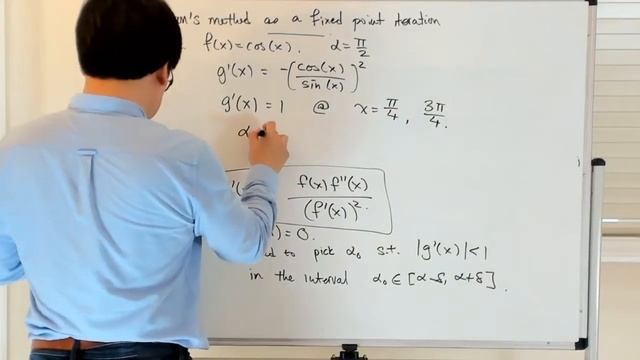 method as a fixed point iteration
f(x) = cos(x). α = π/2
g'(x) = -(cos(x)/sin(x))²
g'(x) = 1 @ x = π/4, 3π/4.
α
f(x) f''(x)/(f'(x))².
) = 0.
to pick α₀ s.t. |g'(x)| < 1
in the interval α₀ ∈ [α-δ, α+δ].